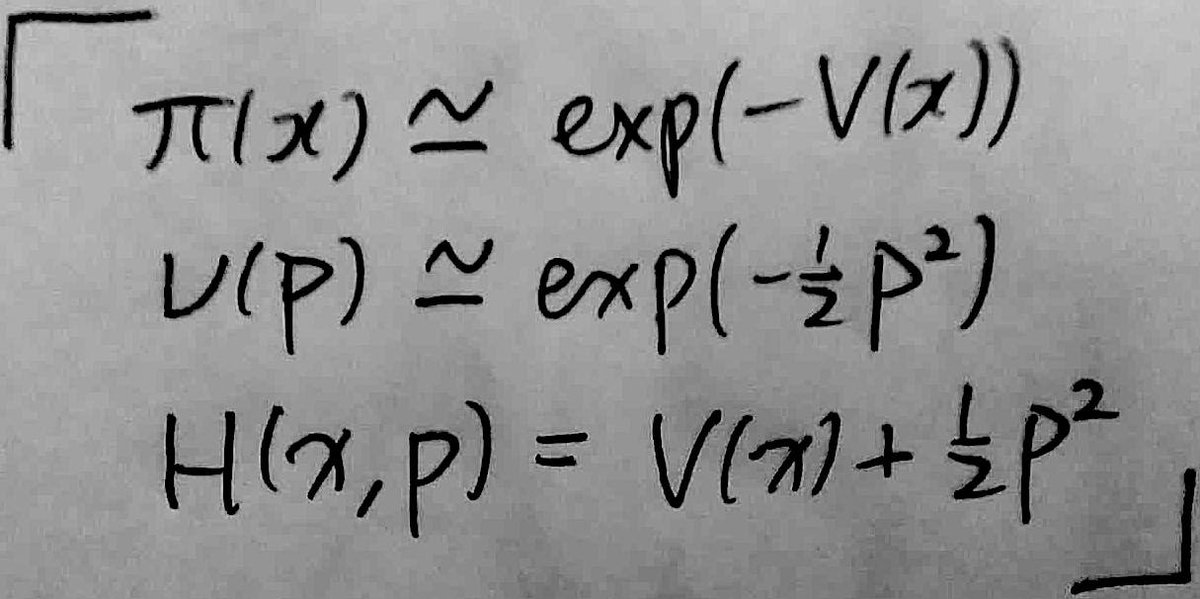 π(x) ≃ exp(-V(x))
ν(p) ≃ exp(-½ p²)
H(x,p) = V(x) + ½ p²